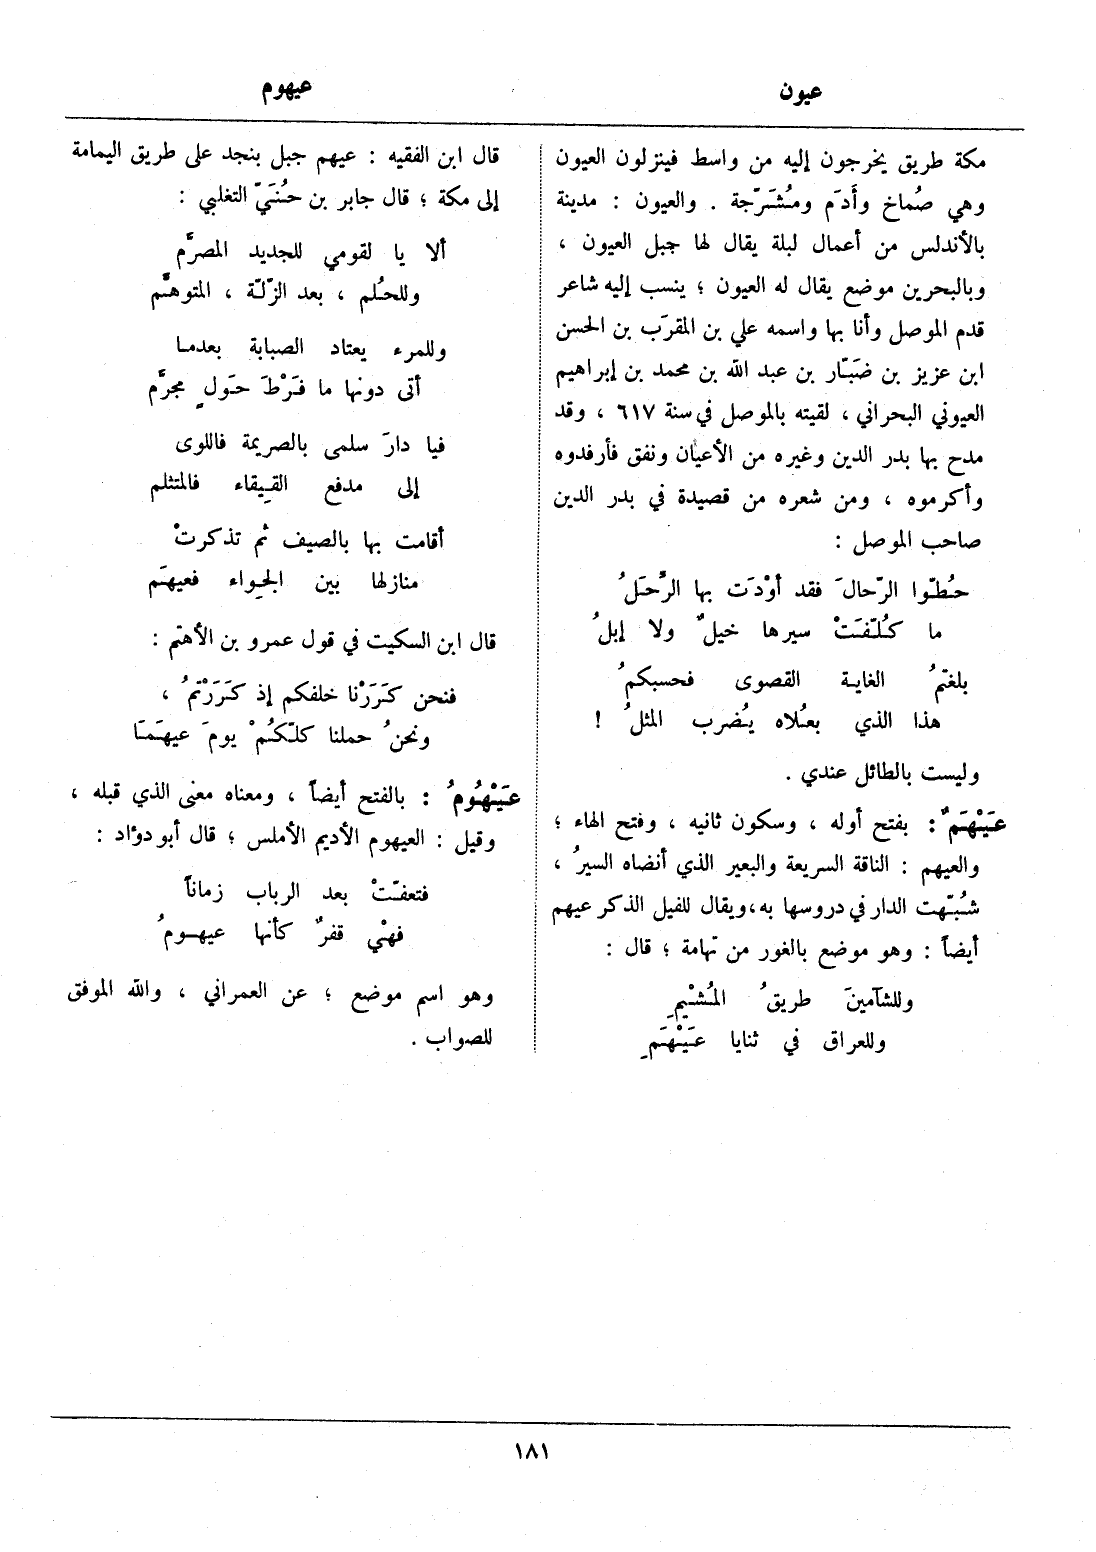 عيون
عيهوم
مكة طريق يخرجون إليه من واسط فينزلون العيون
وهي صُماخ وأَدَم ومُشَرّجة . والعيون : مدينة
بالأندلس من أعمال لبلة يقال لها جبل العيون ،
وبالبحرين موضع يقال له العيون ؛ ينسب إليه شاعر
قدم الموصل وأنا بها واسمه علي بن المقرَب بن الحسن
ابن عزيز بن ضَبّار بن عبد الله بن محمد بن إبراهيم
العيوني البحراني ، لقيته بالموصل في سنة ٦١٧ ، وقد
مدح بها بدر الدين وغيره من الأعيان ونفق فأرفدوه
وأكرموه ، ومن شعره من قصيدة في بدر الدين
صاحب الموصل :
حُطّوا الرّحالَ فقد أوْدَت بها الرَّحَلُ
ما كُلّفَتْ سيرها خيلٌ ولا إبلُ
بلغتمُ الغاية القصوى فحسبكمُ
هذا الذي بعُلاه يُضرب المثلُ !
وليست بالطائل عندي .
عَيْهَمٌ : بفتح أوله ، وسكون ثانيه ، وفتح الهاء ؛
والعيهم : الناقة السريعة والبعير الذي أنضاه السيرُ ،
شُبّهت الدار في دروسها به، ويقال للفيل الذكر عيهم
أيضاً : وهو موضع بالغور من تهامة ؛ قال :
وللشآمينَ طريقُ المُشْئِمِ
وللعراق في ثنايا عَيْهَمِ
قال ابن الفقيه : عيهم جبل بنجد على طريق اليمامة
إلى مكة ؛ قال جابر بن حُنَيّ التغلبي :
ألا يا لقومي للجديد المصرَّم
وللحُلم ، بعد الزّلّة ، المتوهَّم
وللمرء يعتاد الصبابة بعدما
أتى دونها ما فَرْطَ حَولٍ مجرَّم
فيا دارَ سلمى بالصريمة فاللوى
إلى مدفع القيقاء فالمتثلم
أقامت بها بالصيف ثم تذكرتْ
منازلها بين الجِواء فعيهَم
قال ابن السكيت في قول عمرو بن الأهتم :
فنحن كَرَرْنا خلفكم إذ كَرَرْتمُ ،
ونحنُ حملنا كلّكُمْ يومَ عيهَمَا
عَيْهُومُ : بالفتح أيضاً ، ومعناه معنى الذي قبله ،
وقيل : العيهوم الأديم الأملس ؛ قال أبو دؤاد :
فتعفّتْ بعد الرباب زماناً
فهْي قفرٌ كأنها عيهومُ
وهو اسم موضع ؛ عن العمراني ، والله الموفق
للصواب .
١٨١